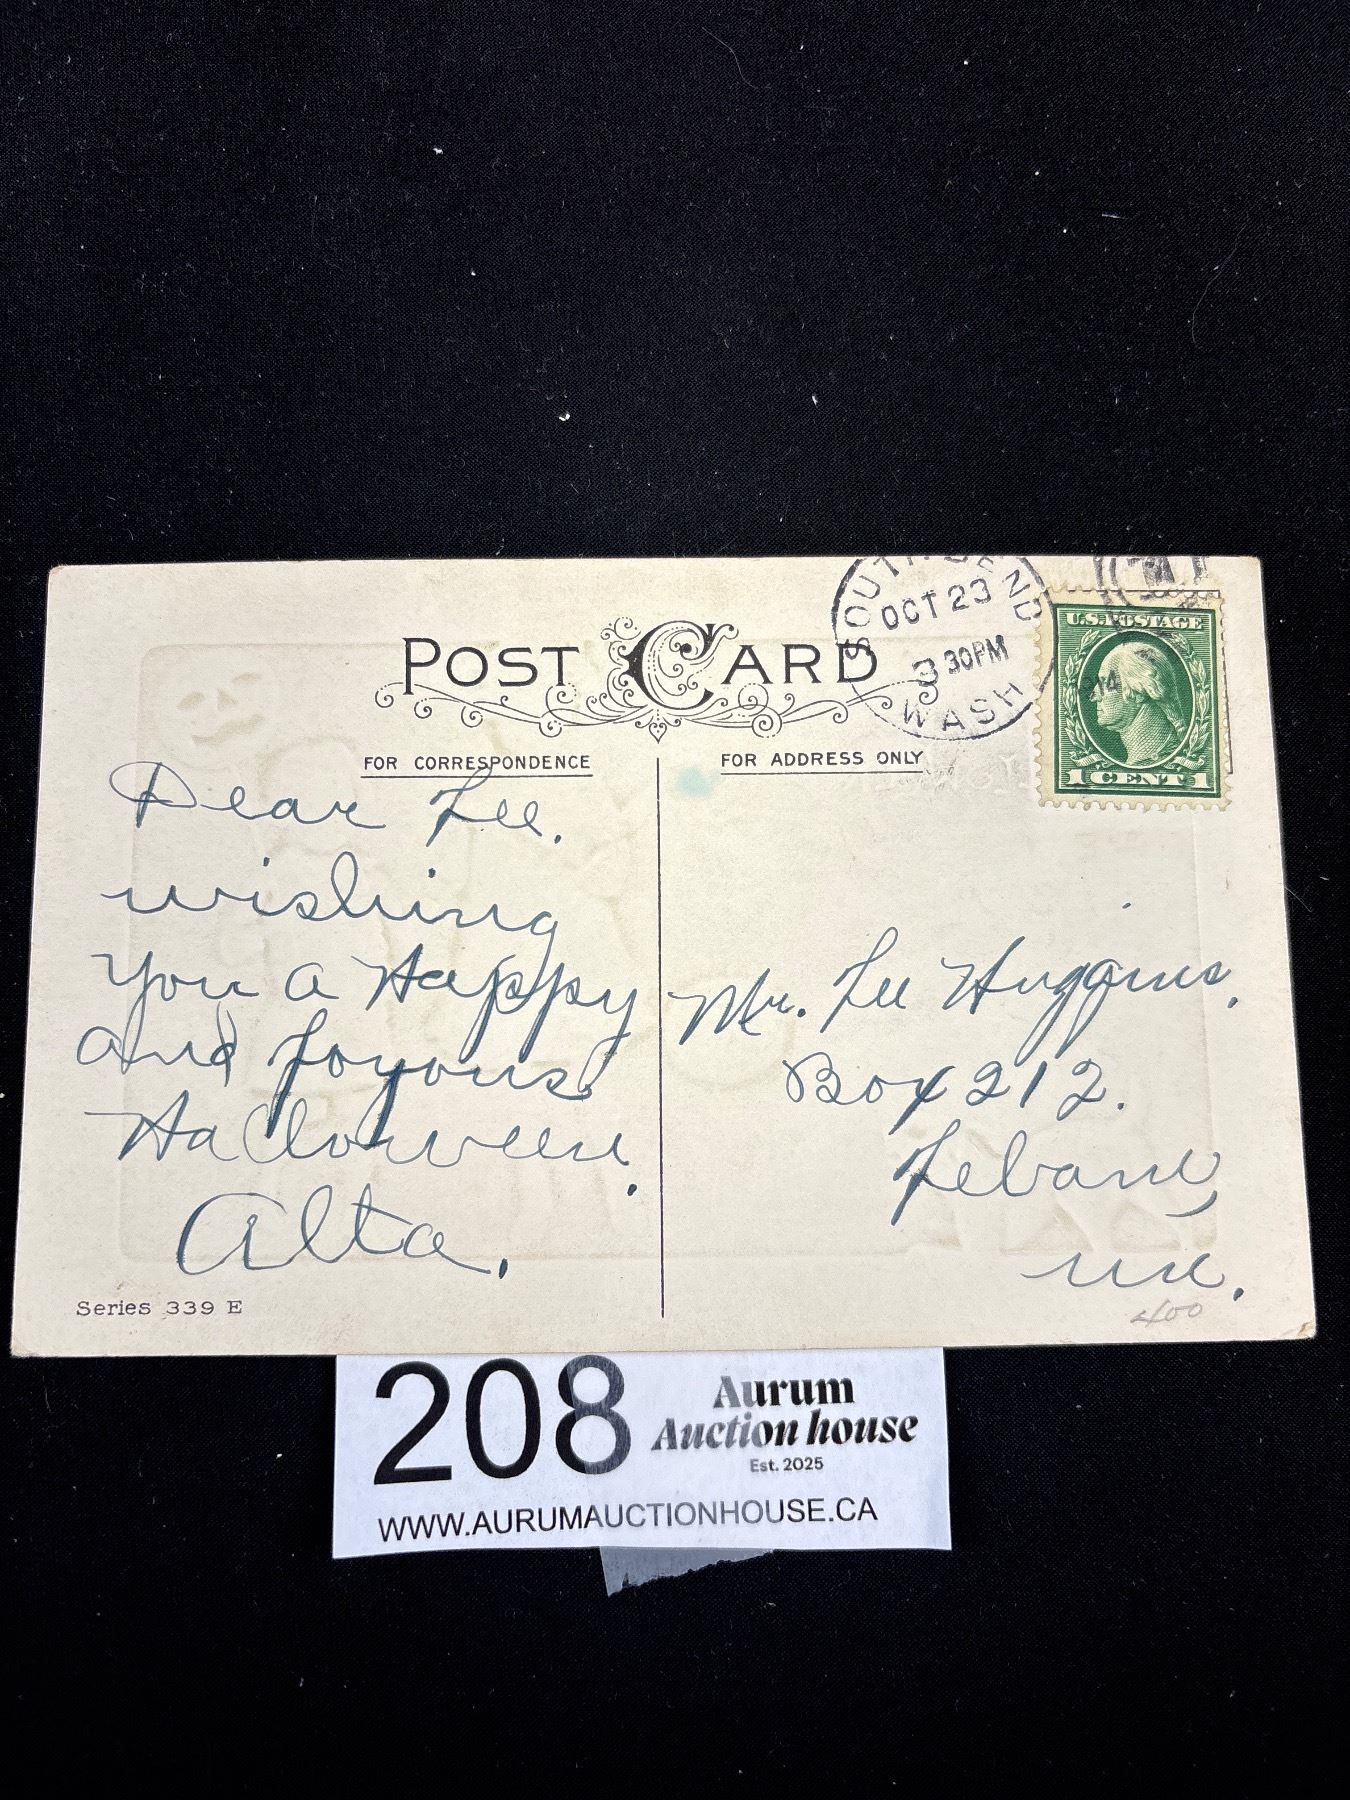 POST CARD
SOUTH BEND
OCT 23
3 30PM
14
WASH
U.S. POSTAGE
1 CENT 1
FOR CORRESPONDENCE
FOR ADDRESS ONLY
Dear Lee.
wishing
you a Happy
and Joyous
Halloween.
Alta.
Mr. Lee Huggins.
Box 212.
Lebam,
Series 339 E
400
208
Aurum
Auction house
Est. 2025
WWW.AURUMAUCTIONHOUSE.CA